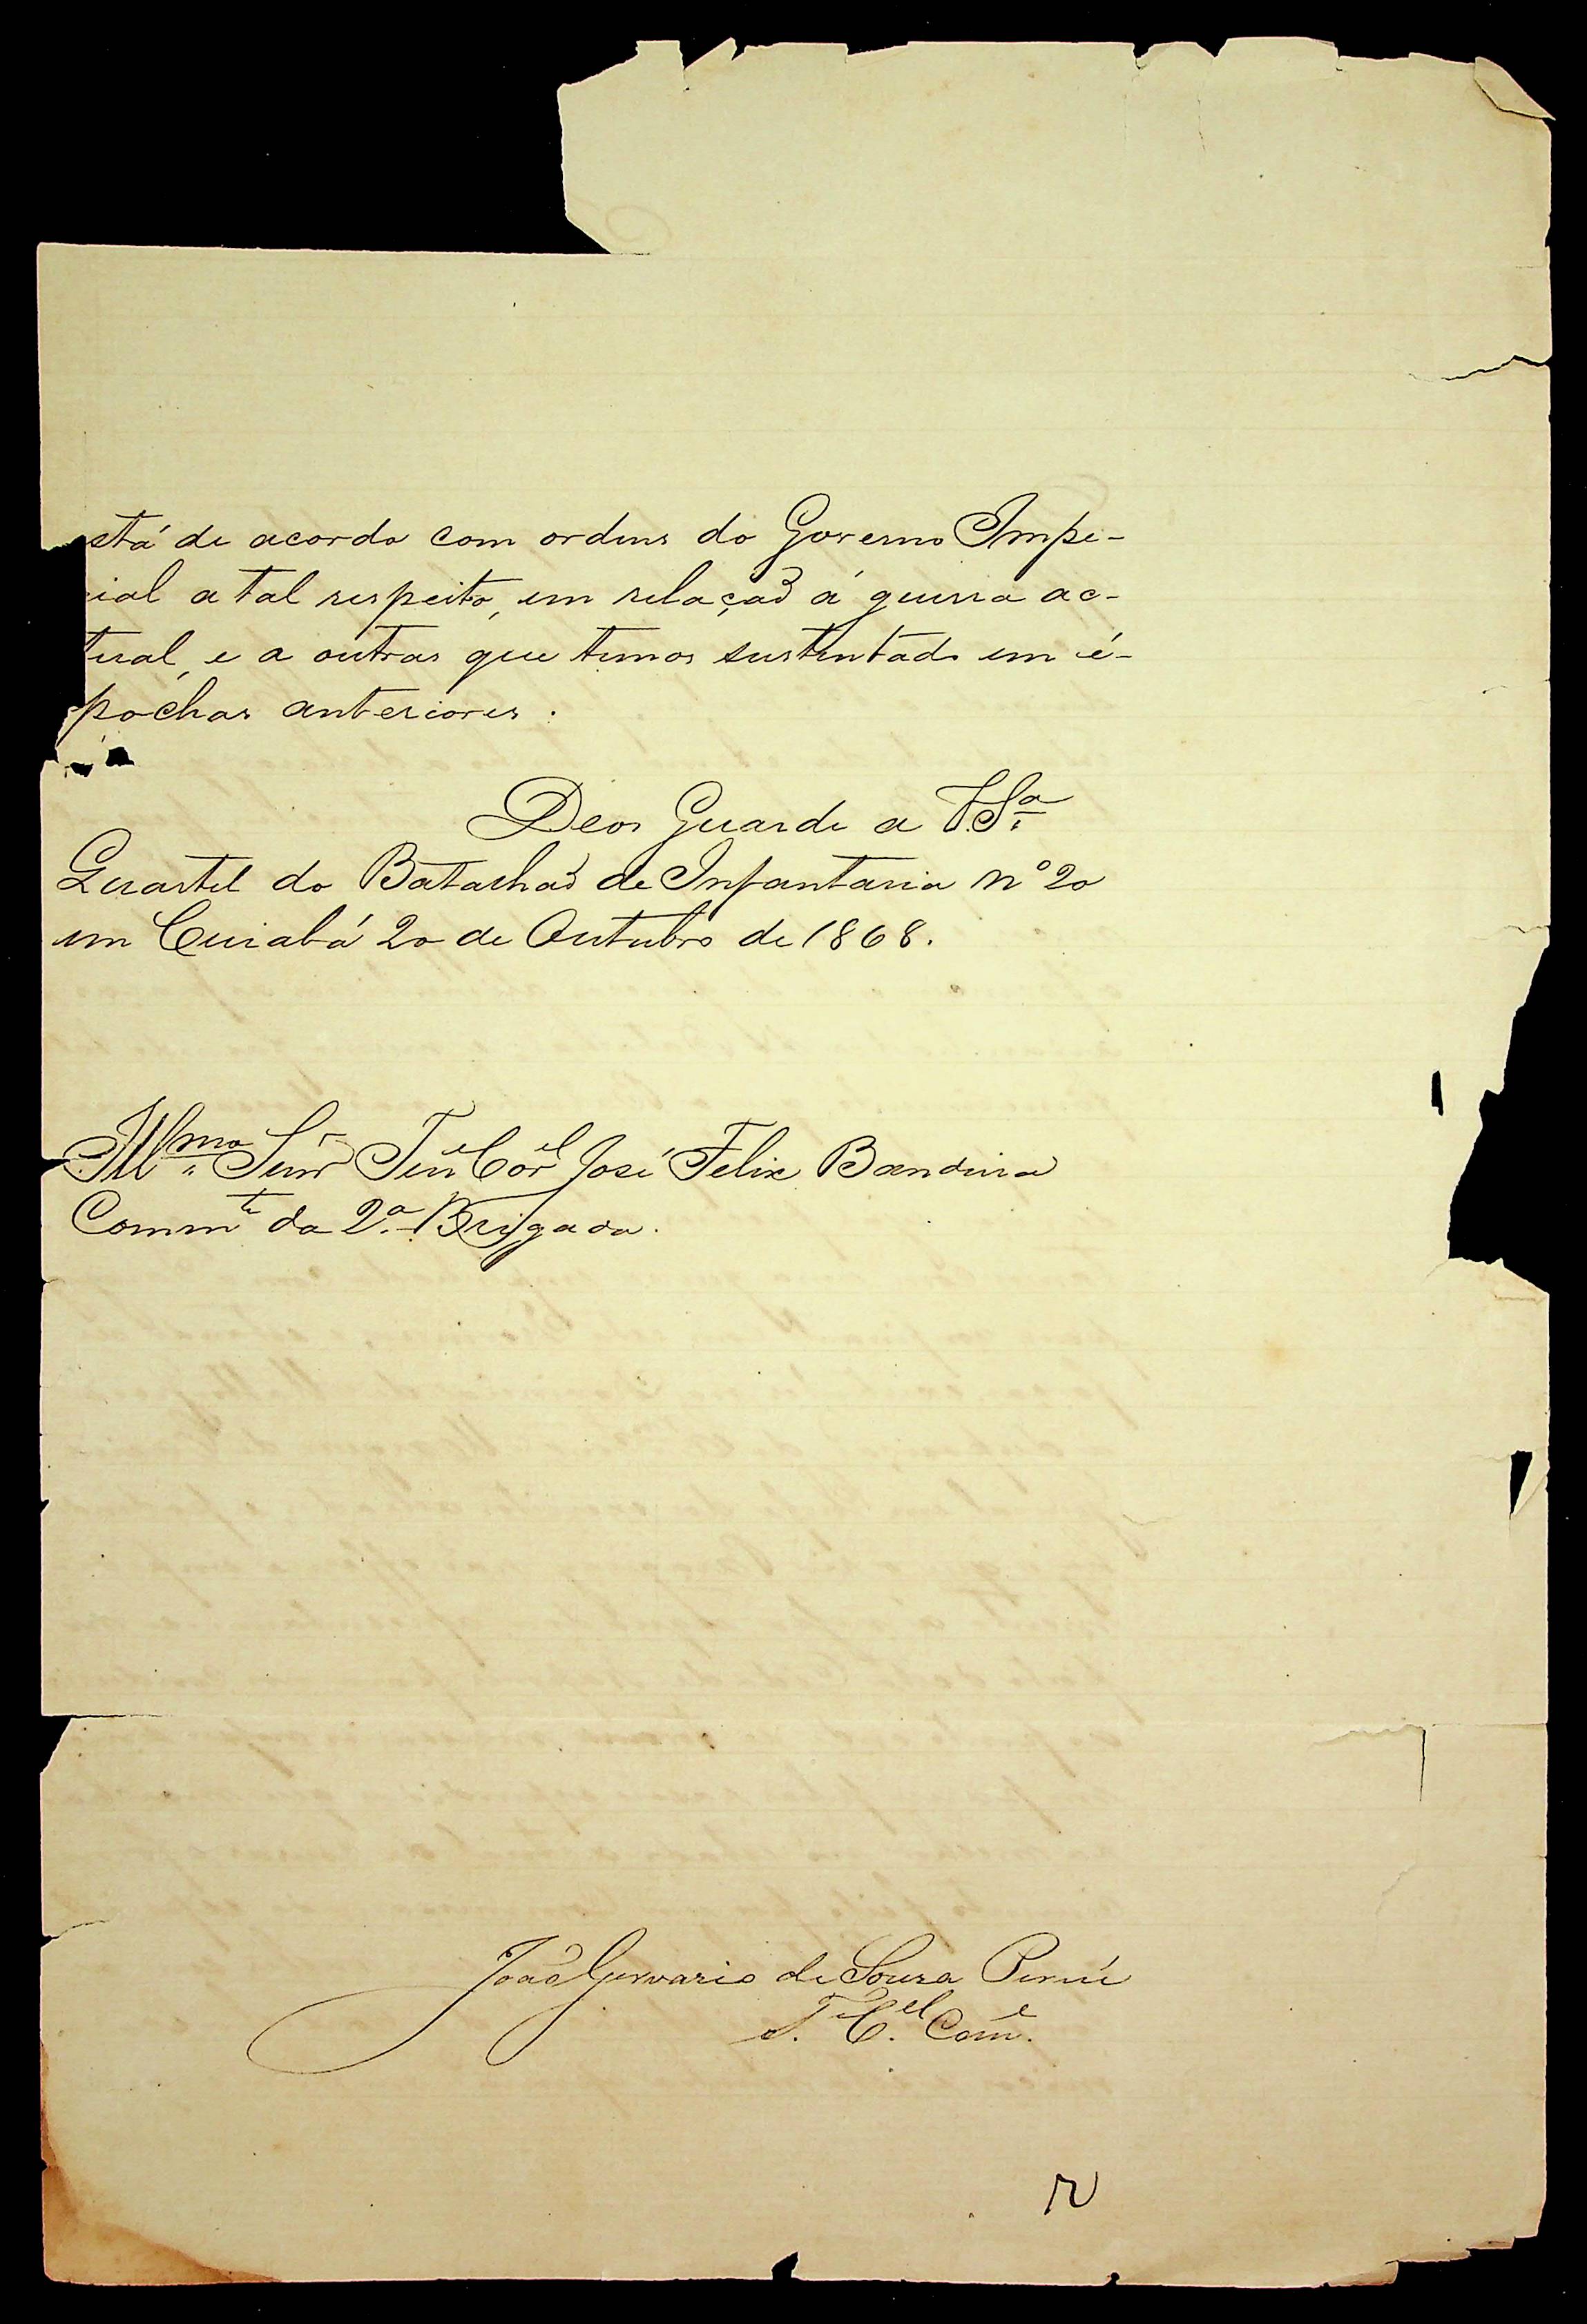 stá de acordo com ordens do Governo Impe-
rial a tal respeito, em relação á guerra ac-
tual, e a outras que temos sustentado em é-
pochas anteriores.
Deos Guarde a V.Sª
Quartel do Batalhaõ de Infantaria nº 20
em Cuiabá 20 de Outubro de 1868.
Illmo Senr Tene Corel José Felix Bandeira
Commte da 2ª Brigada.
João Gervasio de Souza Perné
T. C.el Come.